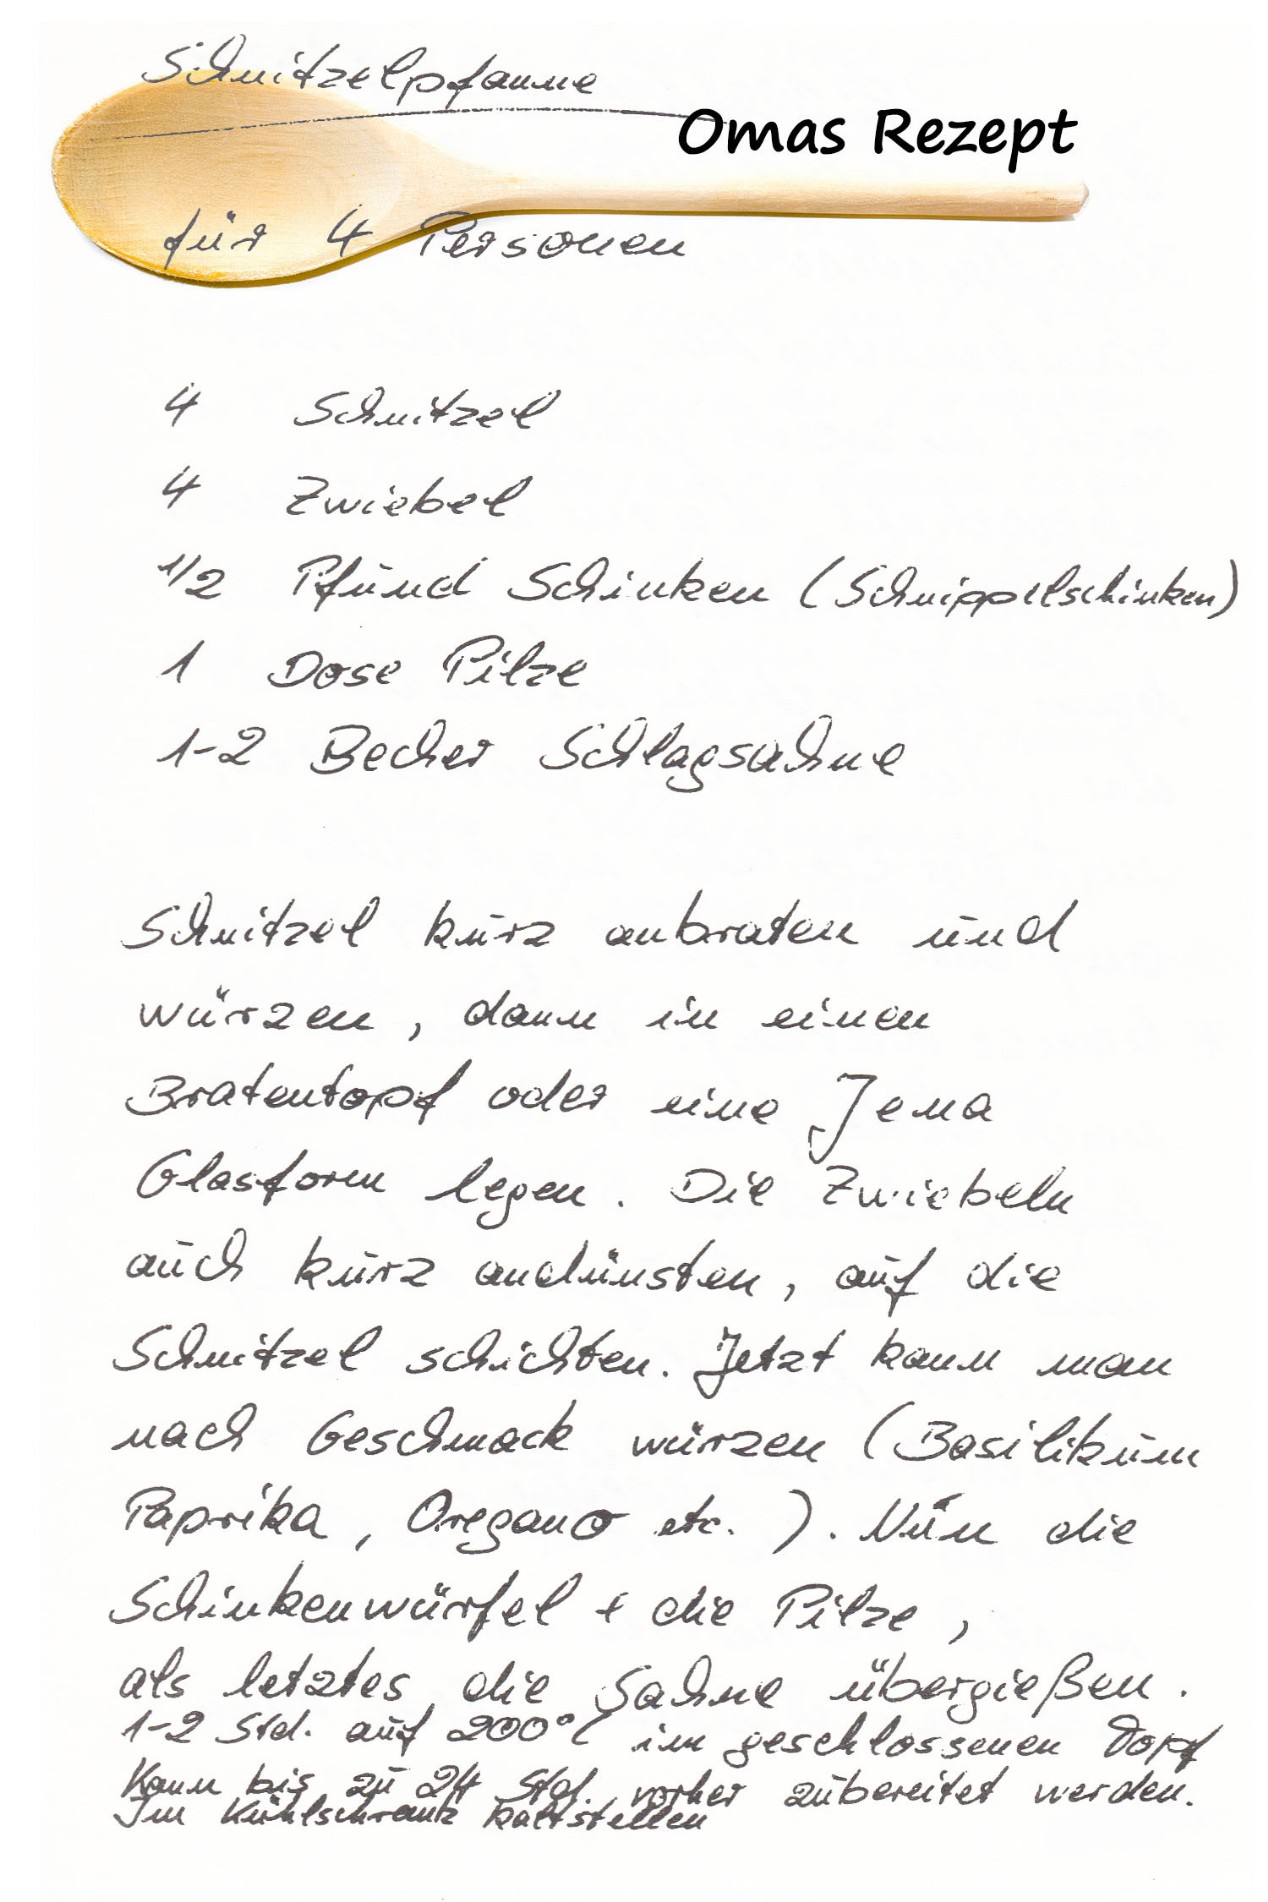 Schnitzelpfanne
Omas Rezept
für 4 Personen
4 Schnitzel
4 Zwiebel
1/2 Pfund Schinken (Schnippelschinken)
1 Dose Pilze
1-2 Becher Schlagsahne
Schnitzel kurz anbraten und
würzen, dann in einen
Bratentopf oder eine Jena
Glasform legen. Die Zwiebeln
auch kurz andünsten, auf die
Schnitzel schichten. Jetzt kann man
nach Geschmack würzen (Basilikum
Paprika, Oregano etc.). Nun die
Schinkenwürfel + die Pilze,
als letztes die Sahne übergießen.
1-2 Std. auf 200°C im geschlossenen Topf
Kann bis zu 24 Std. vorher zubereitet werden.
Im Kühlschrank kaltstellen